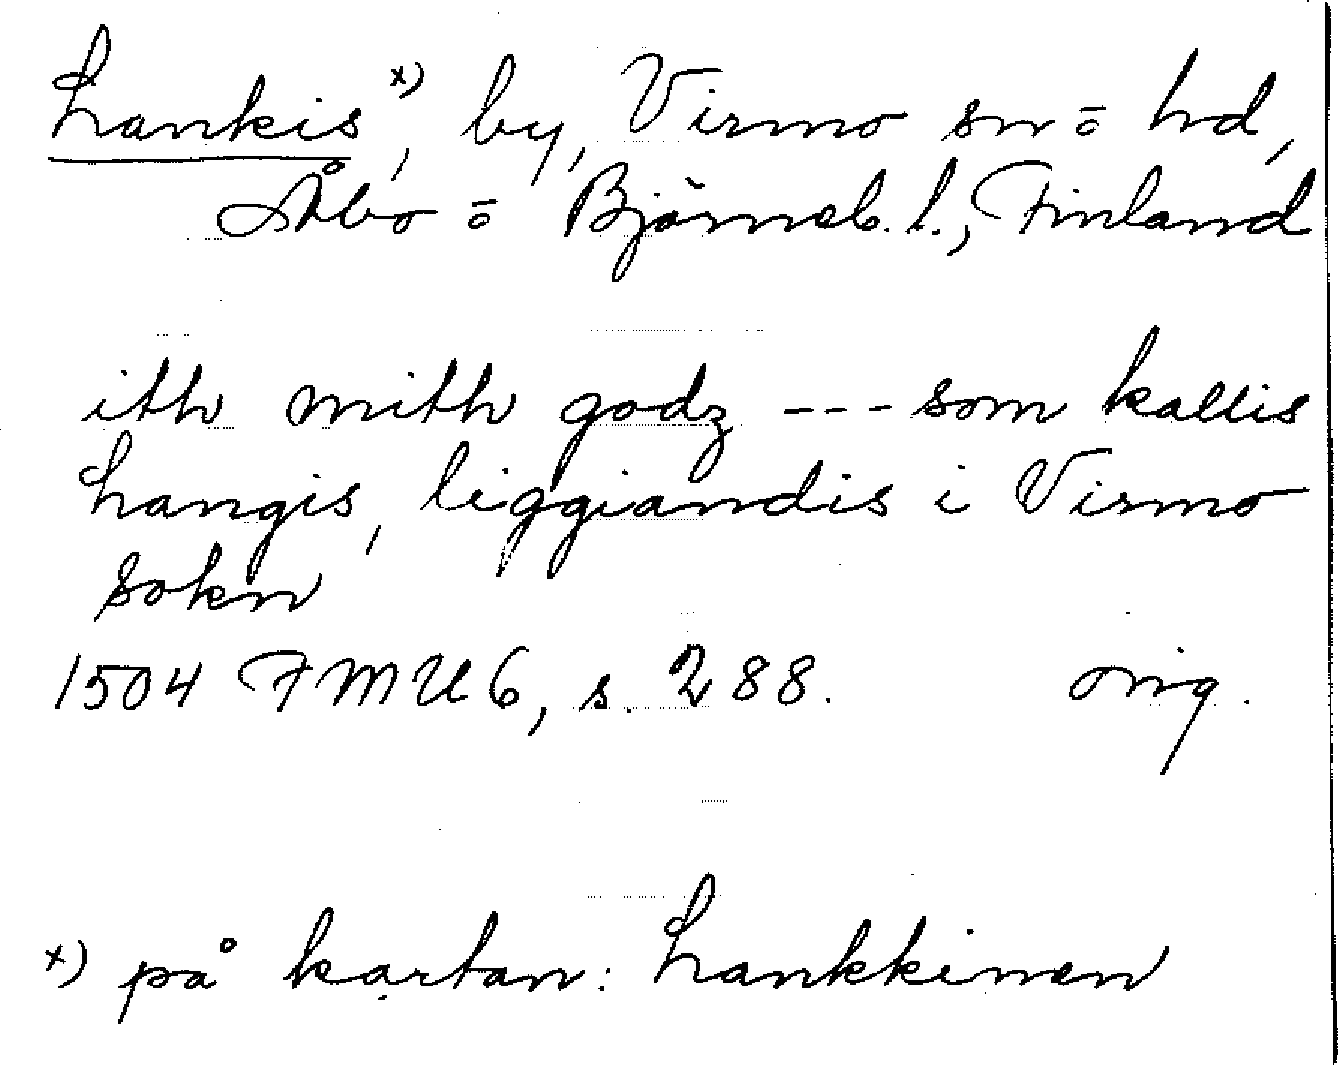 Lankis x), by, Virmo sn ō hd,
Åbo ō Björneb. l., Finland
ith mith godz --- som kallis
Langis, liggiandis i Virmo
sokn
1504 FMU 6, s. 288. orig.
x) på kartan: Lankkinen